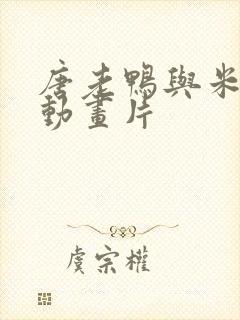 唐老鴨與米
動畫片
虞宗權